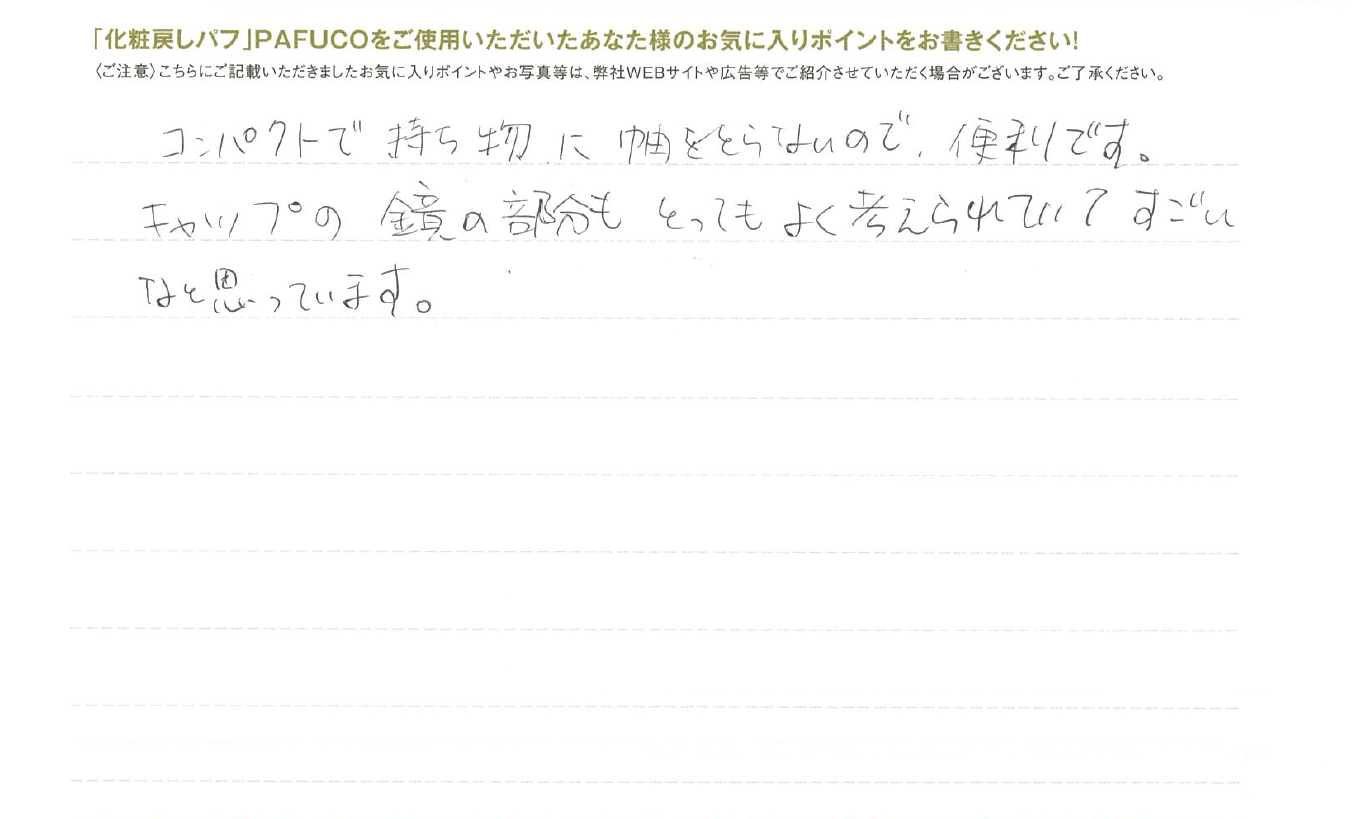 「化粧戻しパフ」PAFUCOをご使用いただいたあなた様のお気に入りポイントをお書きください!
〈ご注意〉こちらにご記載いただきましたお気に入りポイントやお写真等は、弊社WEBサイトや広告等でご紹介させていただく場合がございます。ご了承ください。
コンパクトで持ち物に幅をとらないので、便利です。
キャップの鏡の部分もとってもよく考えられていてすごい
なと思っています。